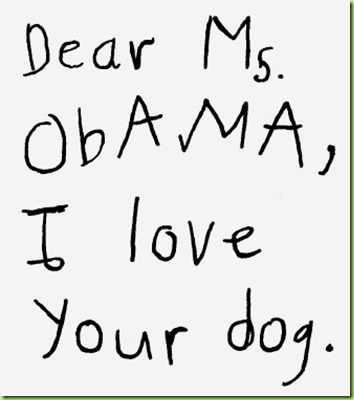 Dear Ms.
ObAMA,
I love
your dog.